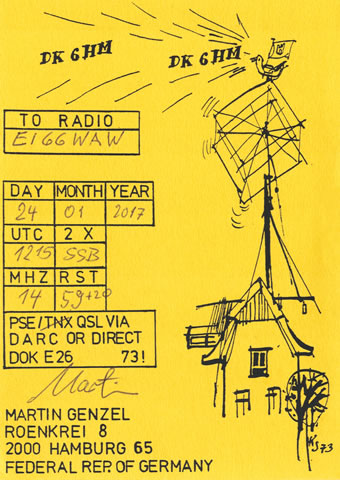 DK 6HM DK 6HM
TO RADIO
EI66WAW
DAY MONTH YEAR
24 01 2017
UTC 2 X
1215 SSB
MHZ RST
14 59+20
PSE/TNX QSL VIA
DARC OR DIRECT
DOK E26 73!
Martin
MARTIN GENZEL
ROENKREI 8
2000 HAMBURG 65
FEDERAL REP. OF GERMANY